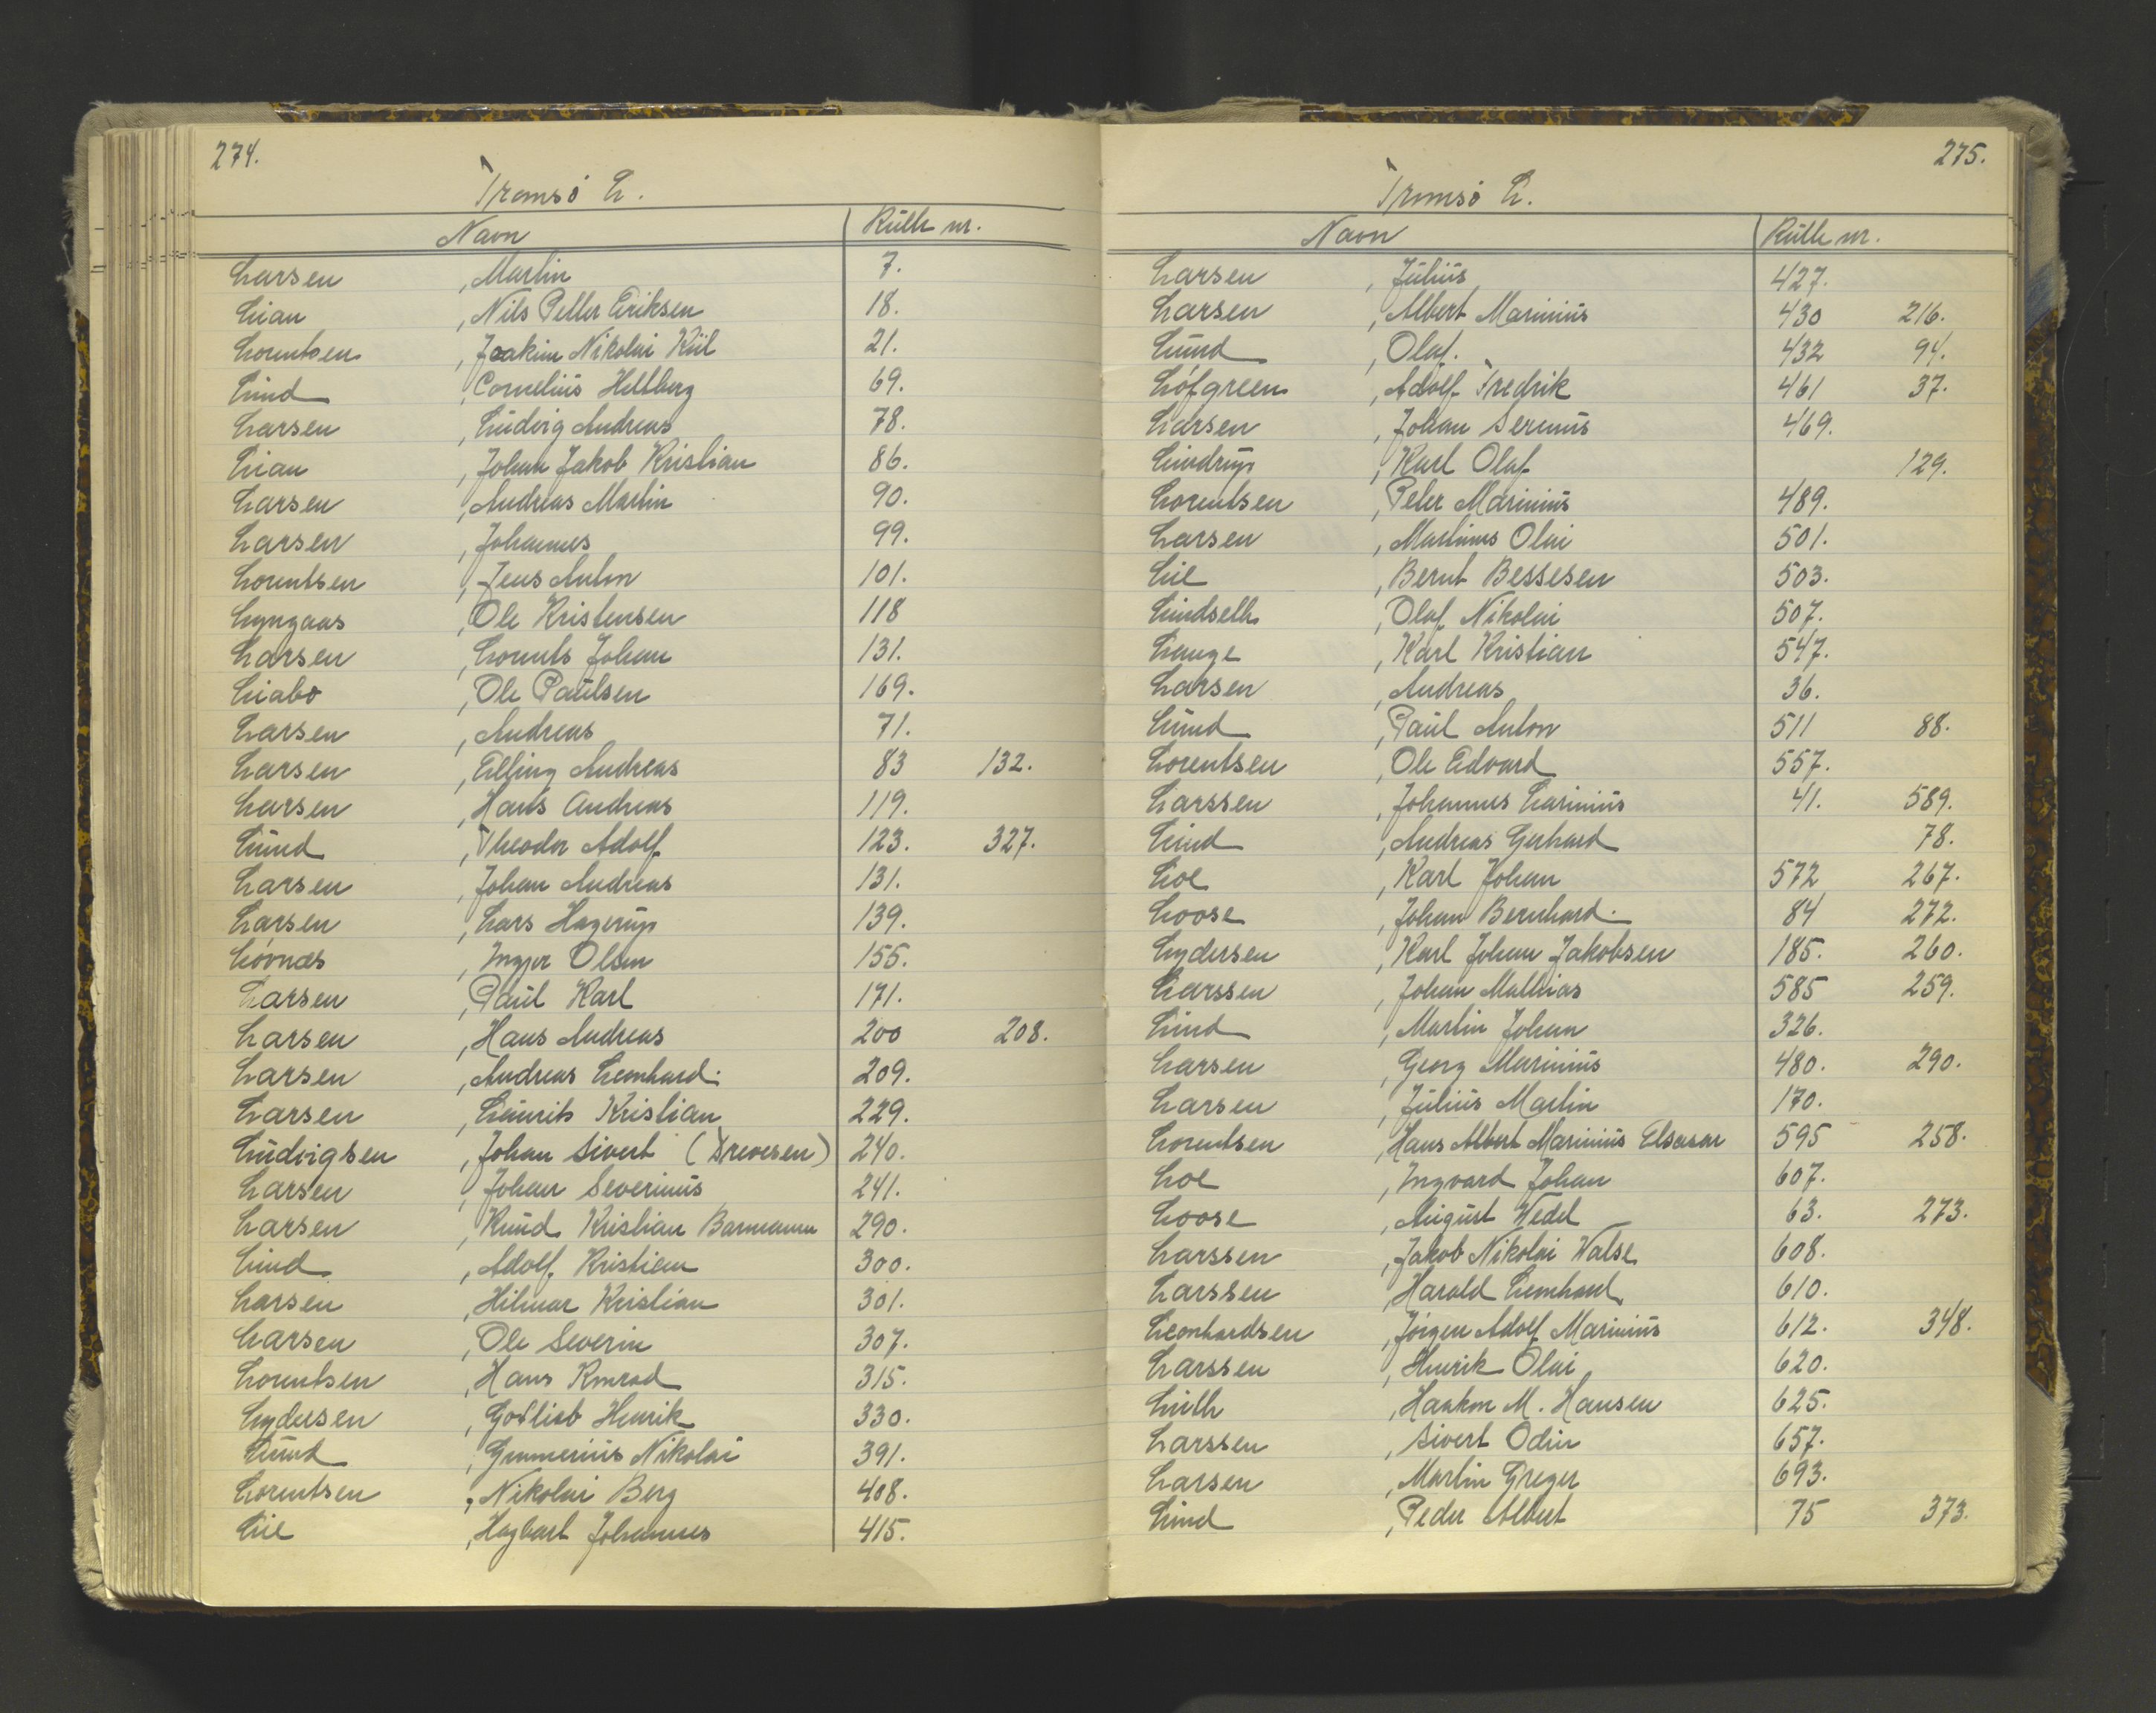 274.
Tromsø L.
Navn Rulle nr.
Larsen , Martin 7.
Lian , Nils Petter Eriksen 18.
Lorentsen , Joakim Nikolai Kiil 21.
Lind , Cornelius Hellberg 69.
Larsen , Ludvig Andreas 78.
Lian , Johan Jakob Kristian 86.
Larsen , Andreas Martin 90.
Larsen , Johannes 99.
Lorentsen , Jens Anton 101.
Lyngaas , Ole Kristensen 118
Larsen , Lorents Johan 131.
Liabø , Ole Paulsen 169.
Larsen , Andreas 71.
Larsen , Elling Andreas 83 132.
Larsen , Hans Andreas 119.
Lund , Theodor Adolf 123. 327.
Larsen , Johan Andreas 131.
Larsen , Lars Hagerup 139.
Løvnæs , Ingjer Olsen 155.
Larsen , Paul Karl 171.
Larsen , Hans Andreas 200 208.
Larsen , Andreas Leonhard. 209.
Larsen , Laurits Kristian 229.
Ludvigsen , Johan Sivert (Drevesen) 240.
Larsen , Johan Severinus 241.
Larsen , Knud Kristian Barmann 290.
Lind , Adolf Kristian 300.
Larsen , Hilmar Kristian 301.
Larsen , Ole Severin 307.
Lorentsen , Hans Konrad 315.
Lydersen , Gotlieb Henrik 330.
Lund , Gunnerius Nikolai 391.
Lorentsen , Nikolai Berg 408.
Lie , Hagbart Johannes 415.
275.
Tromsø L.
Navn Rulle nr.
Larsen , Julius 427.
Larsen , Albert Marinius 430 216.
Lund , Olaf. 432 94.
Löfgreen , Adolf Fredrik 461 37.
Larsen , Johan Serenus 469.
Lindrup , Karl Olaf 129.
Lorentsen , Peter Marinius 489.
Larsen , Martinus Olai 501.
Lie , Bernt Bessesen 503.
Lindseth , Olaf Nikolai 507.
Lange , Karl Kristian 547.
Larsen , Andreas 36.
Lund , Paul Anton 511 88.
Lorentsen , Ole Edvard 557.
Larssen , Johannes Larinius 41. 589.
Lind , Andreas Gerhard 78.
Loe , Karl Johan 572 267.
Loose , Johan Bernhard. 84 272.
Lydersen , Karl Johan Jakobsen 185. 260.
Larssen , Johan Mathias 585 259.
Lind , Martin Johan 326.
Larsen , Georg Marinius 480. 290.
Larsen , Julius Martin 170.
Lorentsen , Hans Albert Marinius Elseasar 595 258.
Loe , Ingvard Johan 607.
Loose , August Wedel 63. 273.
Larssen , Jakob Nikolai Walse 608.
Larssen , Harald Leonhard 610.
Leonhardsen , Jörgen Adolf Marinius 612. 348.
Larssen , Henrik Olai 620.
Luth , Haakon M. Hansen 625.
Larssen , Sivert Odin 657.
Larsen , Martin Greger 693.
Lind , Peder Albert 75 373.